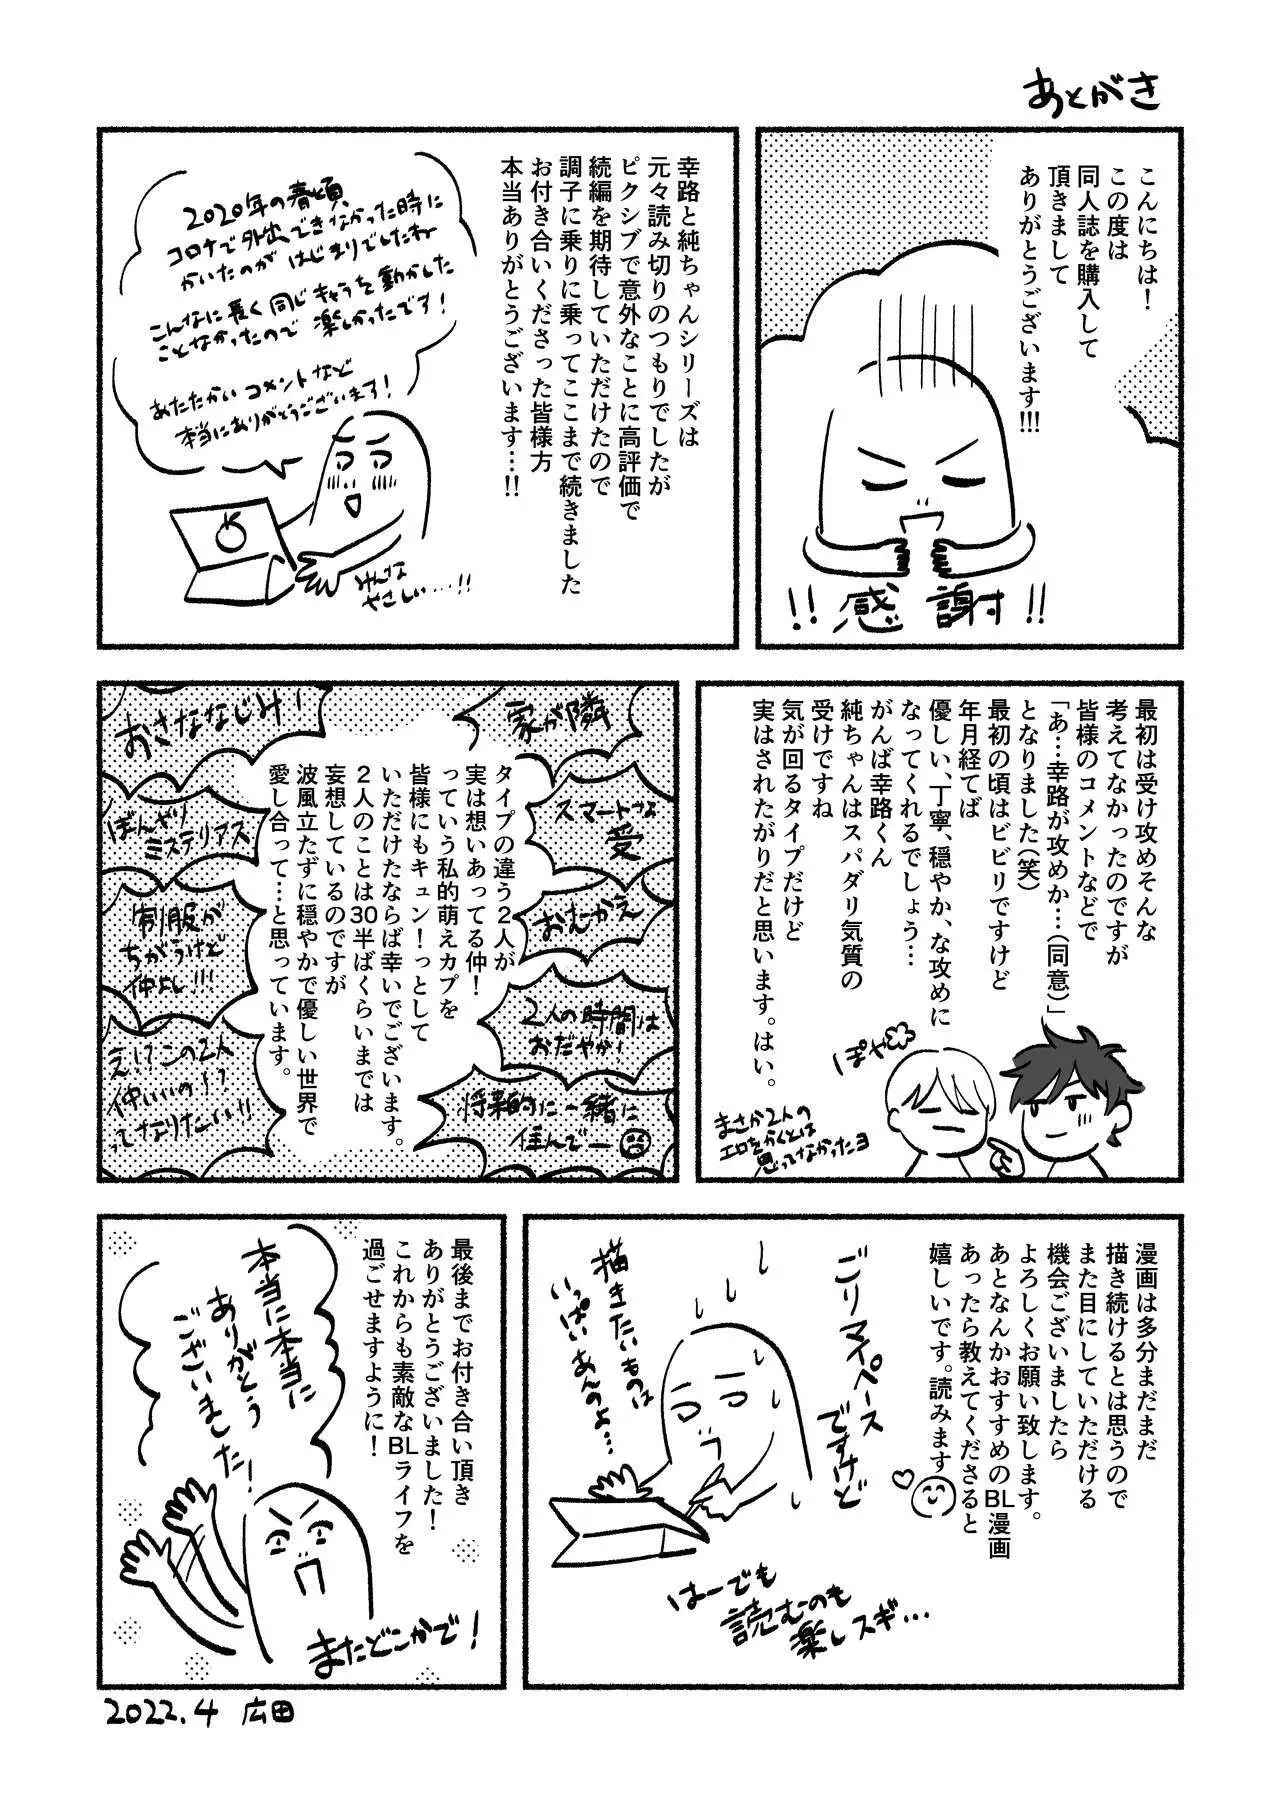 あとがき
こんにちは！
この度は
同人誌を購入して
頂きまして
ありがとうございます!!!
!!感謝!!
幸路と純ちゃんシリーズは
元々読み切りのつもりでしたが
ピクシブで意外なことに高評価で
続編を期待していただけたので
調子に乗りに乗ってここまで続きました
お付き合いくださった皆様方
本当ありがとうございます…!!
2020年の春頃
コロナで外出できなかった時に
かいたのがはじまりでしたねー
こんなに長く同じキャラを動かした
ことなかったので楽しかったです！
あたたかいコメントなど
本当にありがとうございます！
みんな
やさしい…!!
最初は受け攻めそんな
考えてなかったのですが
皆様のコメントなどで
「あ…幸路が攻めか…（同意）」
となりました（笑）
最初の頃はビビリですけど
年月経てば
優しい、丁寧、穏やか、な攻めに
なってくれるでしょう…
がんば幸路くん
純ちゃんはスパダリ気質の
受けですね
気が回るタイプだけど
実はされたがりだと思います。はい。
ぽや
まさか2人の
エロをかくとは
思ってなかったヨ
家が隣
スマートな
受
おむかえ
2人の時間は
おだやか！
将来的に一緒に
住んでー
タイプの違う2人が
実は想いあってる仲！
っていう私的萌えカプを
皆様にもキュン！っとして
いただけたならば幸いでございます。
2人のことは30半ばくらいまでは
妄想しているのですが
波風立たずに穏やかで優しい世界で
愛し合って…と思っています。
おさななじみ！
ぼんやり
ミステリアス
制服が
ちがうけど
仲よし!!!
え!?この2人
仲いいの!?
ってなりたい!!
漫画は多分まだまだ
描き続けるとは思うので
また目にしていただける
機会ございましたら
よろしくお願い致します。
あとなんかおすすめのBL漫画
あったら教えてくださると
嬉しいです。読みます
ごりマイペース
ですけど
描きたいものは
いっぱいあんのよ…
はーでも
読むのも
楽しスギ…
最後までお付き合い頂き
ありがとうございました！
これからも素敵なBLライフを
過ごせますように！
本当に本当に
ありがとう
ございました！
またどこかで！
2022.4 広田